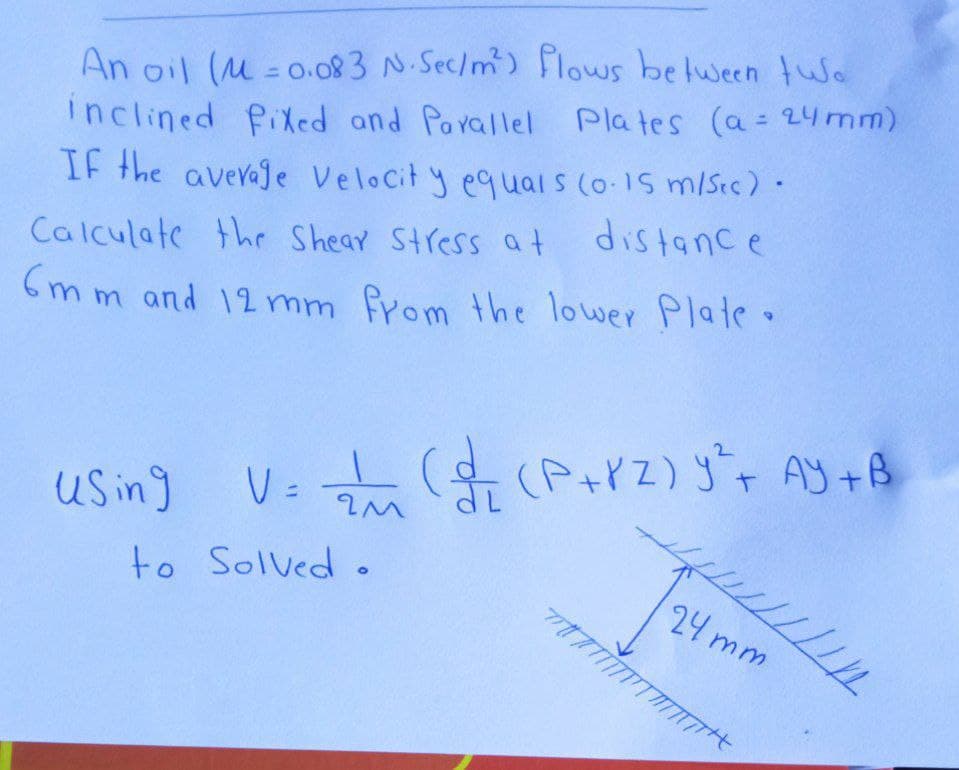 An oil (μ = 0.083 N.Sec/m²) flows between two
inclined fixed and Parallel Plates (a = 24mm)
IF the average Velocity equals (0.15 m/Sec).
Calculate the Shear Stress at distance
6mm and 12 mm from the lower Plate.
using V = 1/2μ (d/dL (P+γZ) y² + Ay + B
to Solved.
24 mm